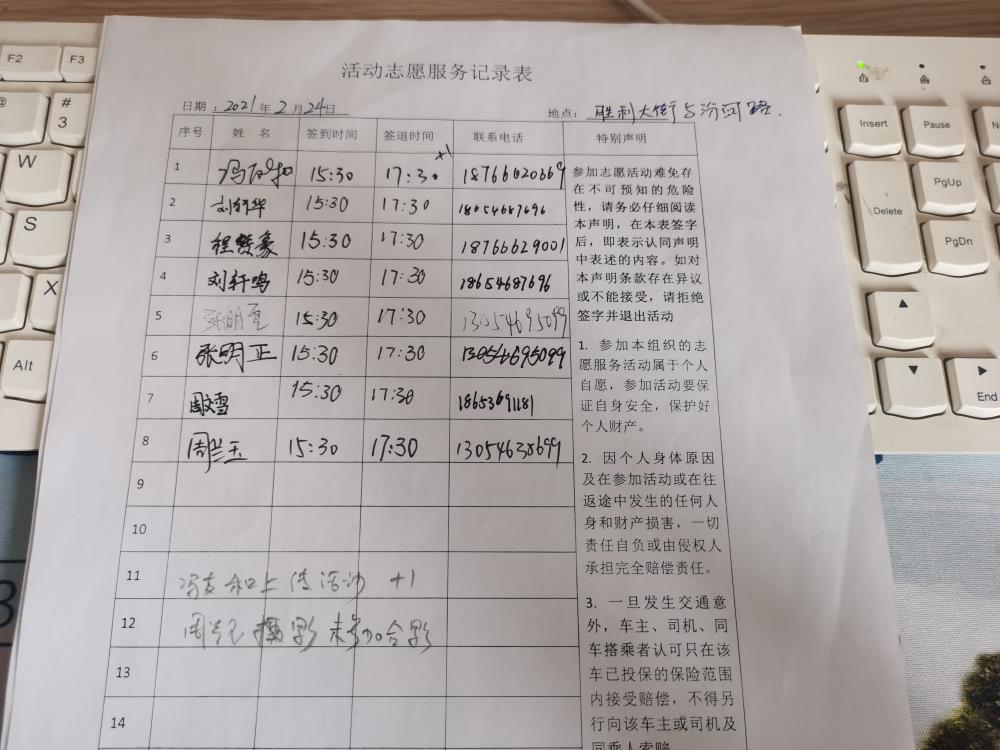 活动志愿服务记录表
日期：2021年2月24日
地点：胜利大街与汾河路.
序号 姓 名 签到时间 签退时间 联系电话 特别声明
+1
1 15:30 17:30 18766620669
2 刘轩华 15:30 17:30 18654687696
3 程赞豪 15:30 17:30 18766629001
4 刘轩鸣 15:30 17:30 18654687696
5 15:30 17:30 13054695099
6 张明正 15:30 17:30 13054695099
7 周文雪 15:30 17:30 18653691181
8 周兰玉 15:30 17:30 13054638699
9
10
11 上传活动 +1
12 摄影 未参加合影
13
14
参加志愿活动难免存
在不可预知的危险
性，请务必仔细阅读
本声明，在本表签字
后，即表示认同声明
中表述的内容。如对
本声明条款存在异议
或不能接受，请拒绝
签字并退出活动
1. 参加本组织的志
愿服务活动属于个人
自愿，参加活动要保
证自身安全，保护好
个人财产。
2. 因个人身体原因
及在参加活动或在往
返途中发生的任何人
身和财产损害，一切
责任自负或由侵权人
承担完全赔偿责任。
3. 一旦发生交通意
外，车主、司机、同
车搭乘者认可只在该
车已投保的保险范围
内接受赔偿，不得另
行向该车主或司机及
同乘人索赔
F2 F3
# 3
W
S
X
Alt
Insert Pause
Delete PgUp
PgDn
End